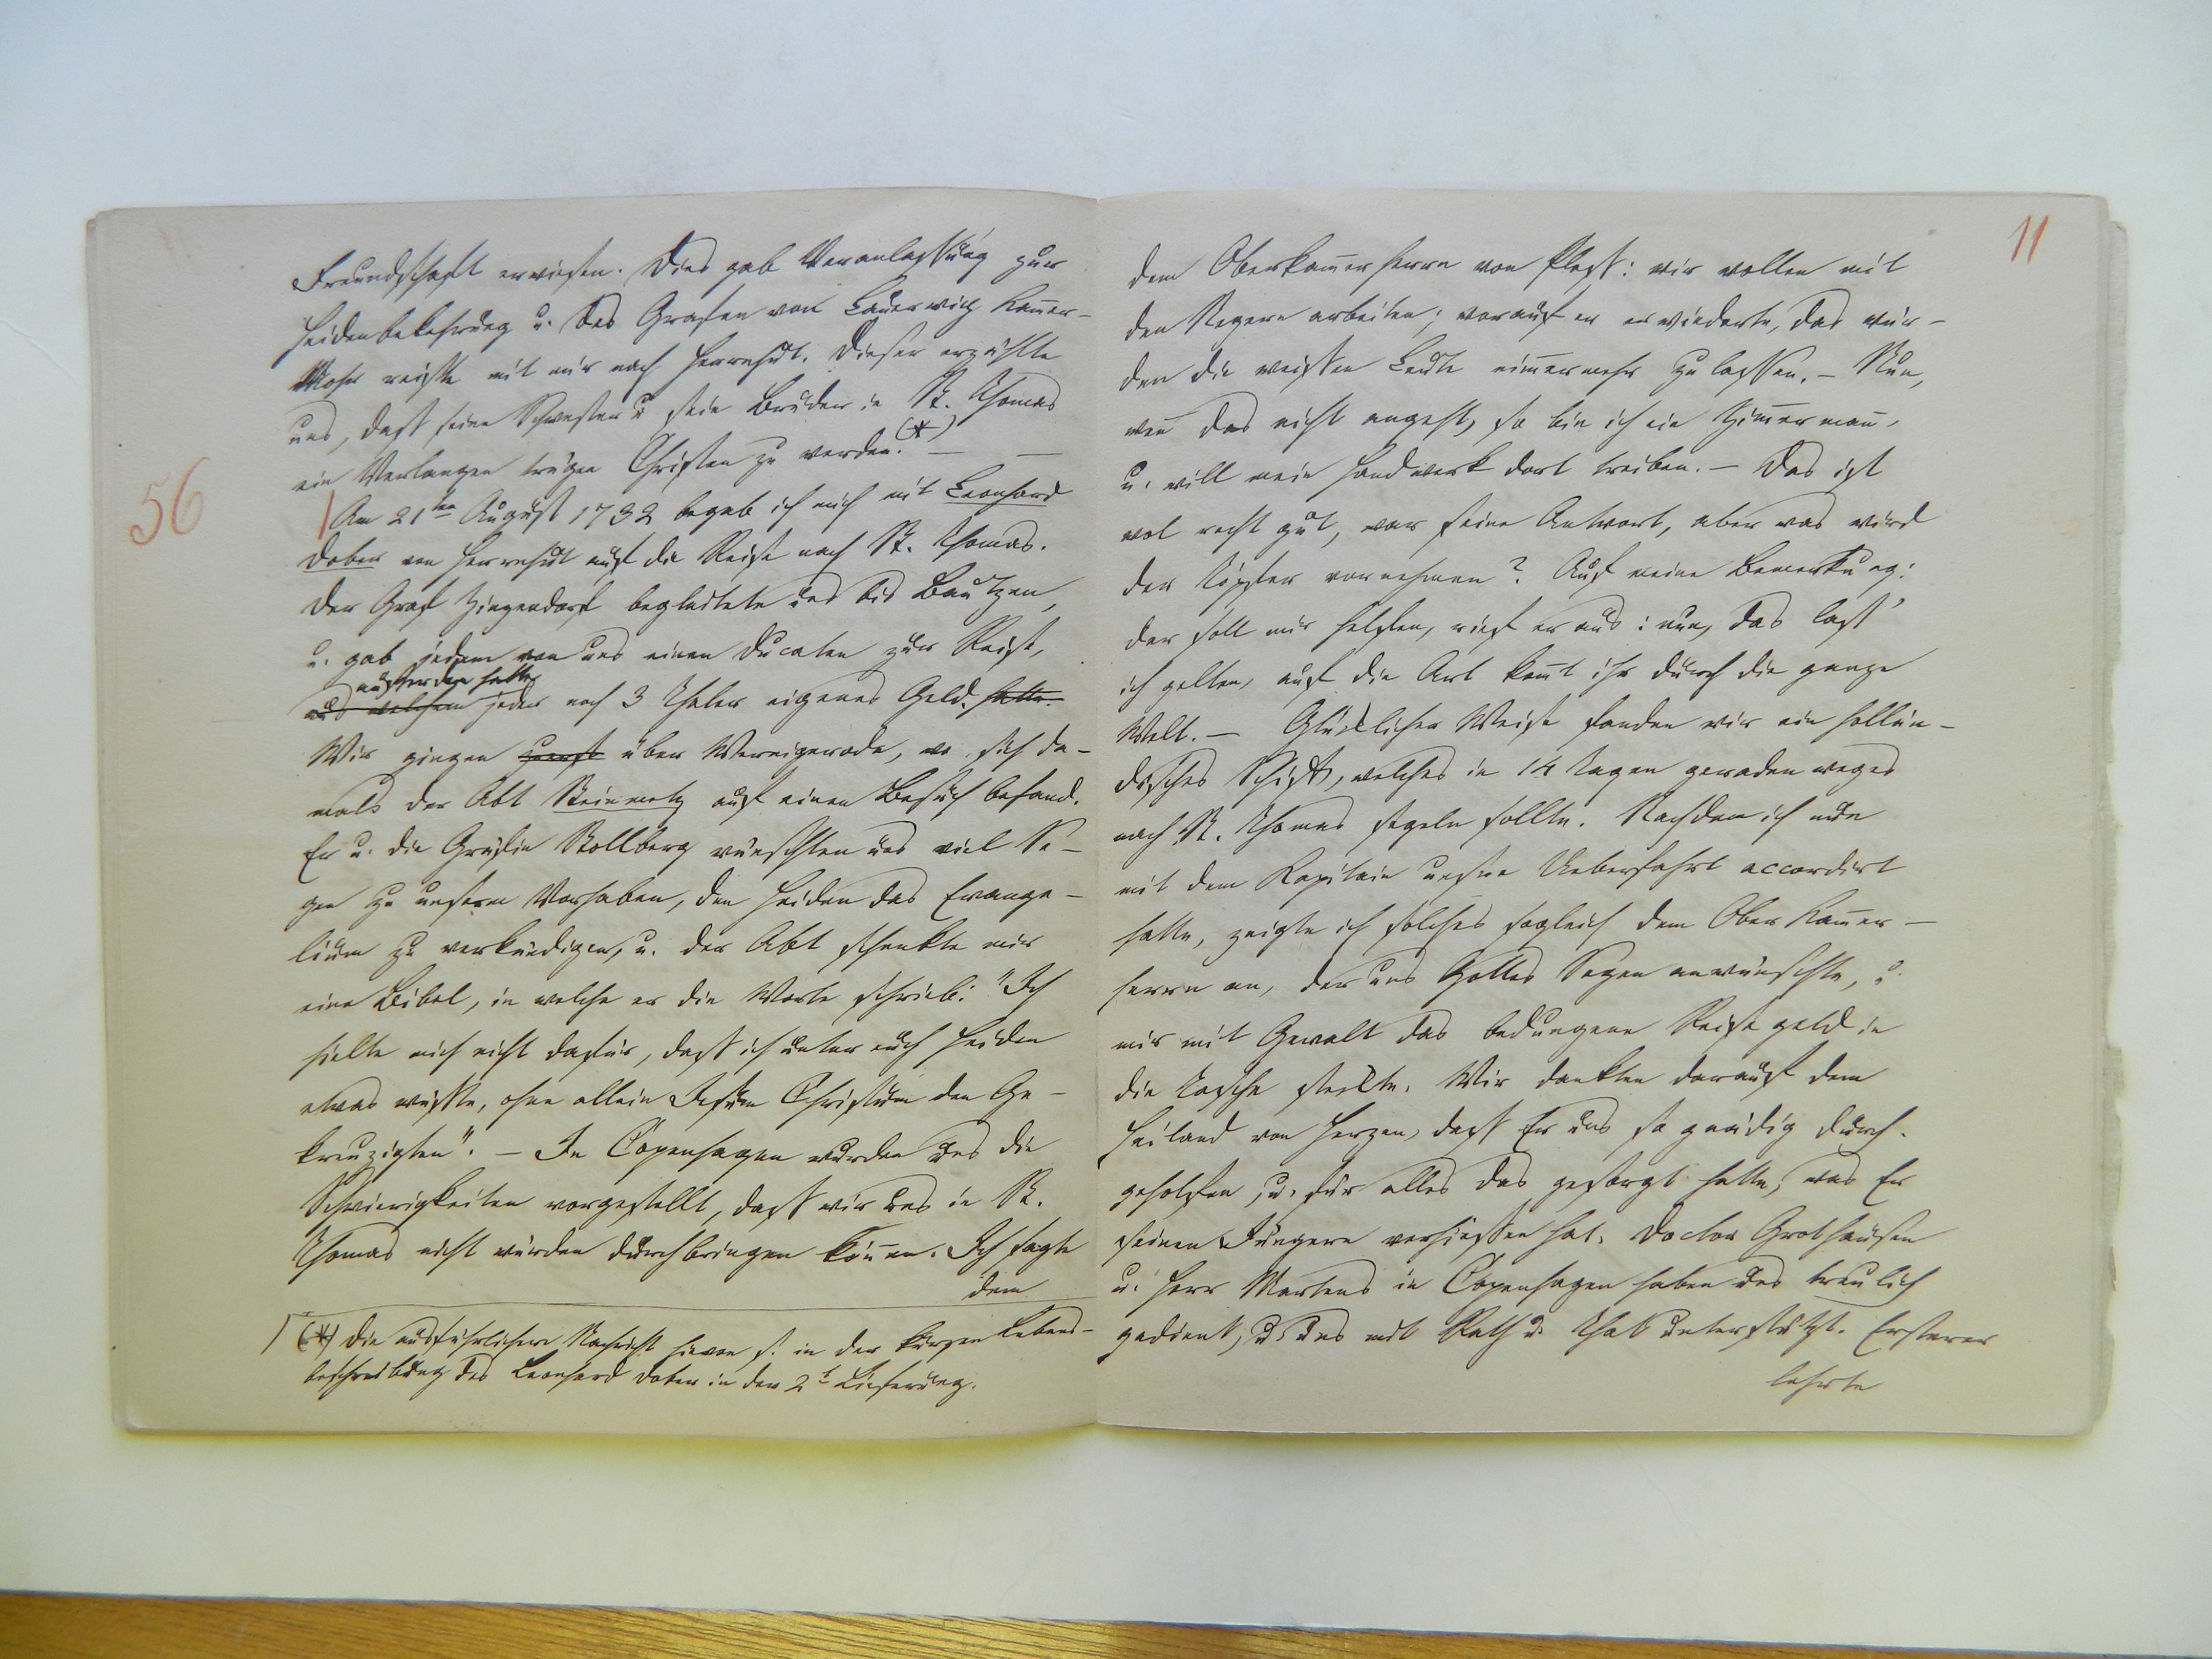 Freundschaft erwiesen. Dies gab Veranlassung zur
Heidenbekehrung u. des Grafen von Laurwig Kam̄er-
Mohr reiste mit mir nach Herrnhut. Dieser erzählte
uns, daß seine Schwester u. sein Bruder in St. Thomas
ein Verlangen trügen Christen zu werden. (*) — —
56
Am 21ten August 1732 begab ich mich mit Leonhard
Dober von Herrnhut auf die Reise nach St. Thomas.
Der Graf Zinzendorf begleitete uns bis Bautzen,
u. gab jedem von uns einen Ducaten zur Reise,
außerdem hatte
aus welchem jeder noch 3 Thaler eigenes Geld. hatte.
Wir gingen zuerst über Wernigerode, wo sich da-
mals der Abt Steinmetz auf einen Besuch befand.
Er u. die Gräfin Stollberg wünschten uns viel Se-
gen zu unserm Vorhaben, den Heiden das Evange-
lium zu verkündigen, u. der Abt schenkte mir
eine Bibel, in welche er die Worte schrieb: "Ich
hielte mich nicht dafür, daß ich unter euch Heiden
etwas wüßte, ohne allein Jesum Christum den Ge-
kreuzigten". — In Copenhagen wurden uns die
Schwierigkeiten vorgestellt, daß wir uns in St.
Thomas nicht würden durchbringen kön̄en. Ich sagte
dem
(*) Die ausführlichere Nachricht hievon s. in der kurzen Lebens-
beschreibung des Leonhard Dober in der 2t Lieferung.
11
dem Oberkam̄erherrn von Pleß: wir wollen mit
den Negern arbeiten; worauf er erwiederte, das wür-
den die weißen Leute nim̄ermehr zulassen. — Nun,
wen̄ das nicht angeht, so bin ich ein Zim̄erman̄,
u. will mein Handwerk dort treiben. — Das ist
wol recht gut, war seine Antwort, aber was wird
der Töpfer vornehmen? Auf meine Bemerkung:
der soll mir helfen, rief er aus: nun, das laß'
ich gelten, auf die Art kom̄t ihr durch die ganze
Welt. — Glücklicher Weise fanden wir ein hollän-
disches Schiff, welches in 14 Tagen geraden weges
nach St. Thomas segeln sollte. Nachdem ich nun
mit dem Kapitain unsre Ueberfahrt accordirt
hatte, zeigte ich solches sogleich dem Ober Kam̄er-
herrn an, der uns Gottes Segen anwünschte, u.
mir mit Gewalt das bedungene Reisegeld in
die Tasche steckte. Wir dankten darauf dem
Heiland von Herzen, daß Er uns so gnädig durch-
geholfen, u. für alles das gesorgt hatte, was Er
seinen Jüngern verheißen hat. Doctor Grothausen
u. Herr Martens in Copenhagen haben uns treulich
gedient, u. uns mit Rath u. That unterstützt. Ersterer
lehrte